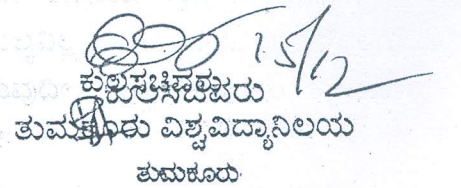 15/12
ಕುಲಸಚಿವರು
ತುಮಕೂರು ವಿಶ್ವವಿದ್ಯಾನಿಲಯ
ತುಮಕೂರು